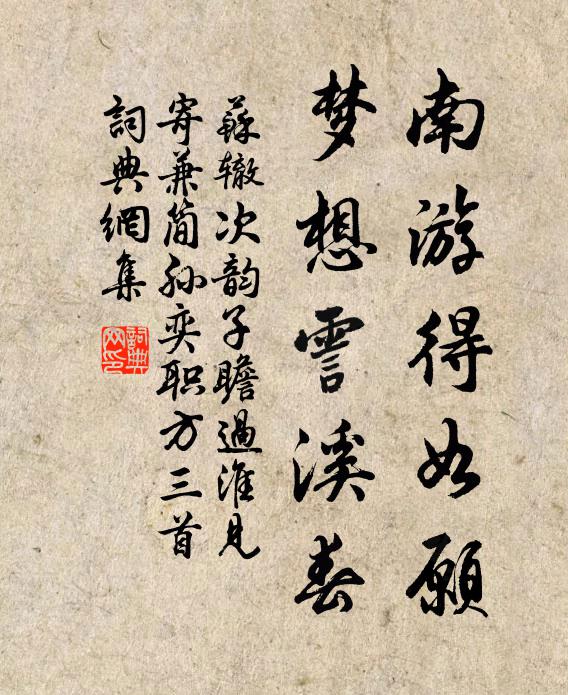 南游得如願
梦想霅溪春
蘇辙次韵子瞻過淮見
寄兼简孙奕职方三首
詞典網集
詞典网印